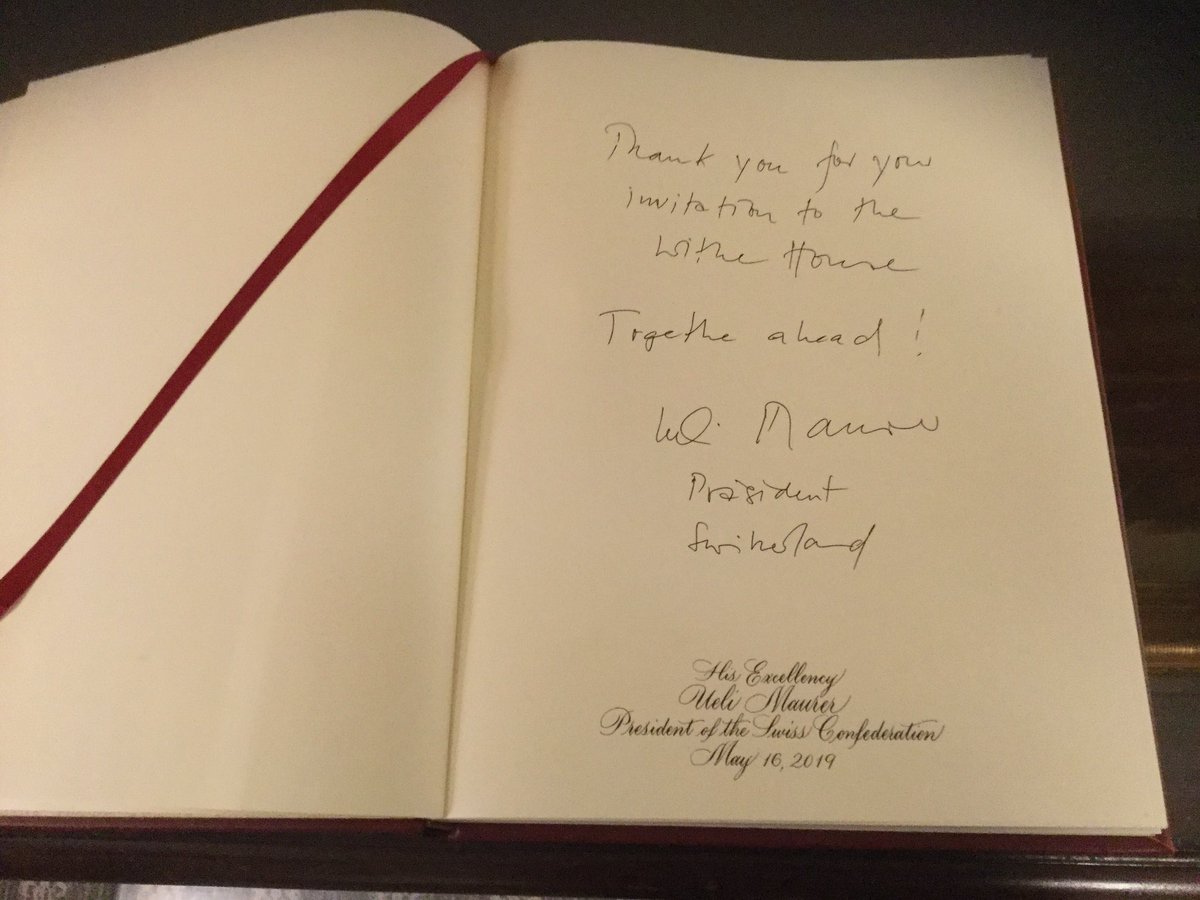 Thank you for your
invitation to the
Withe House
Togethe ahead !
Ueli Maurer
Präsident
Switzerland
His Excellency
Ueli Maurer
President of the Swiss Confederation
May 16, 2019